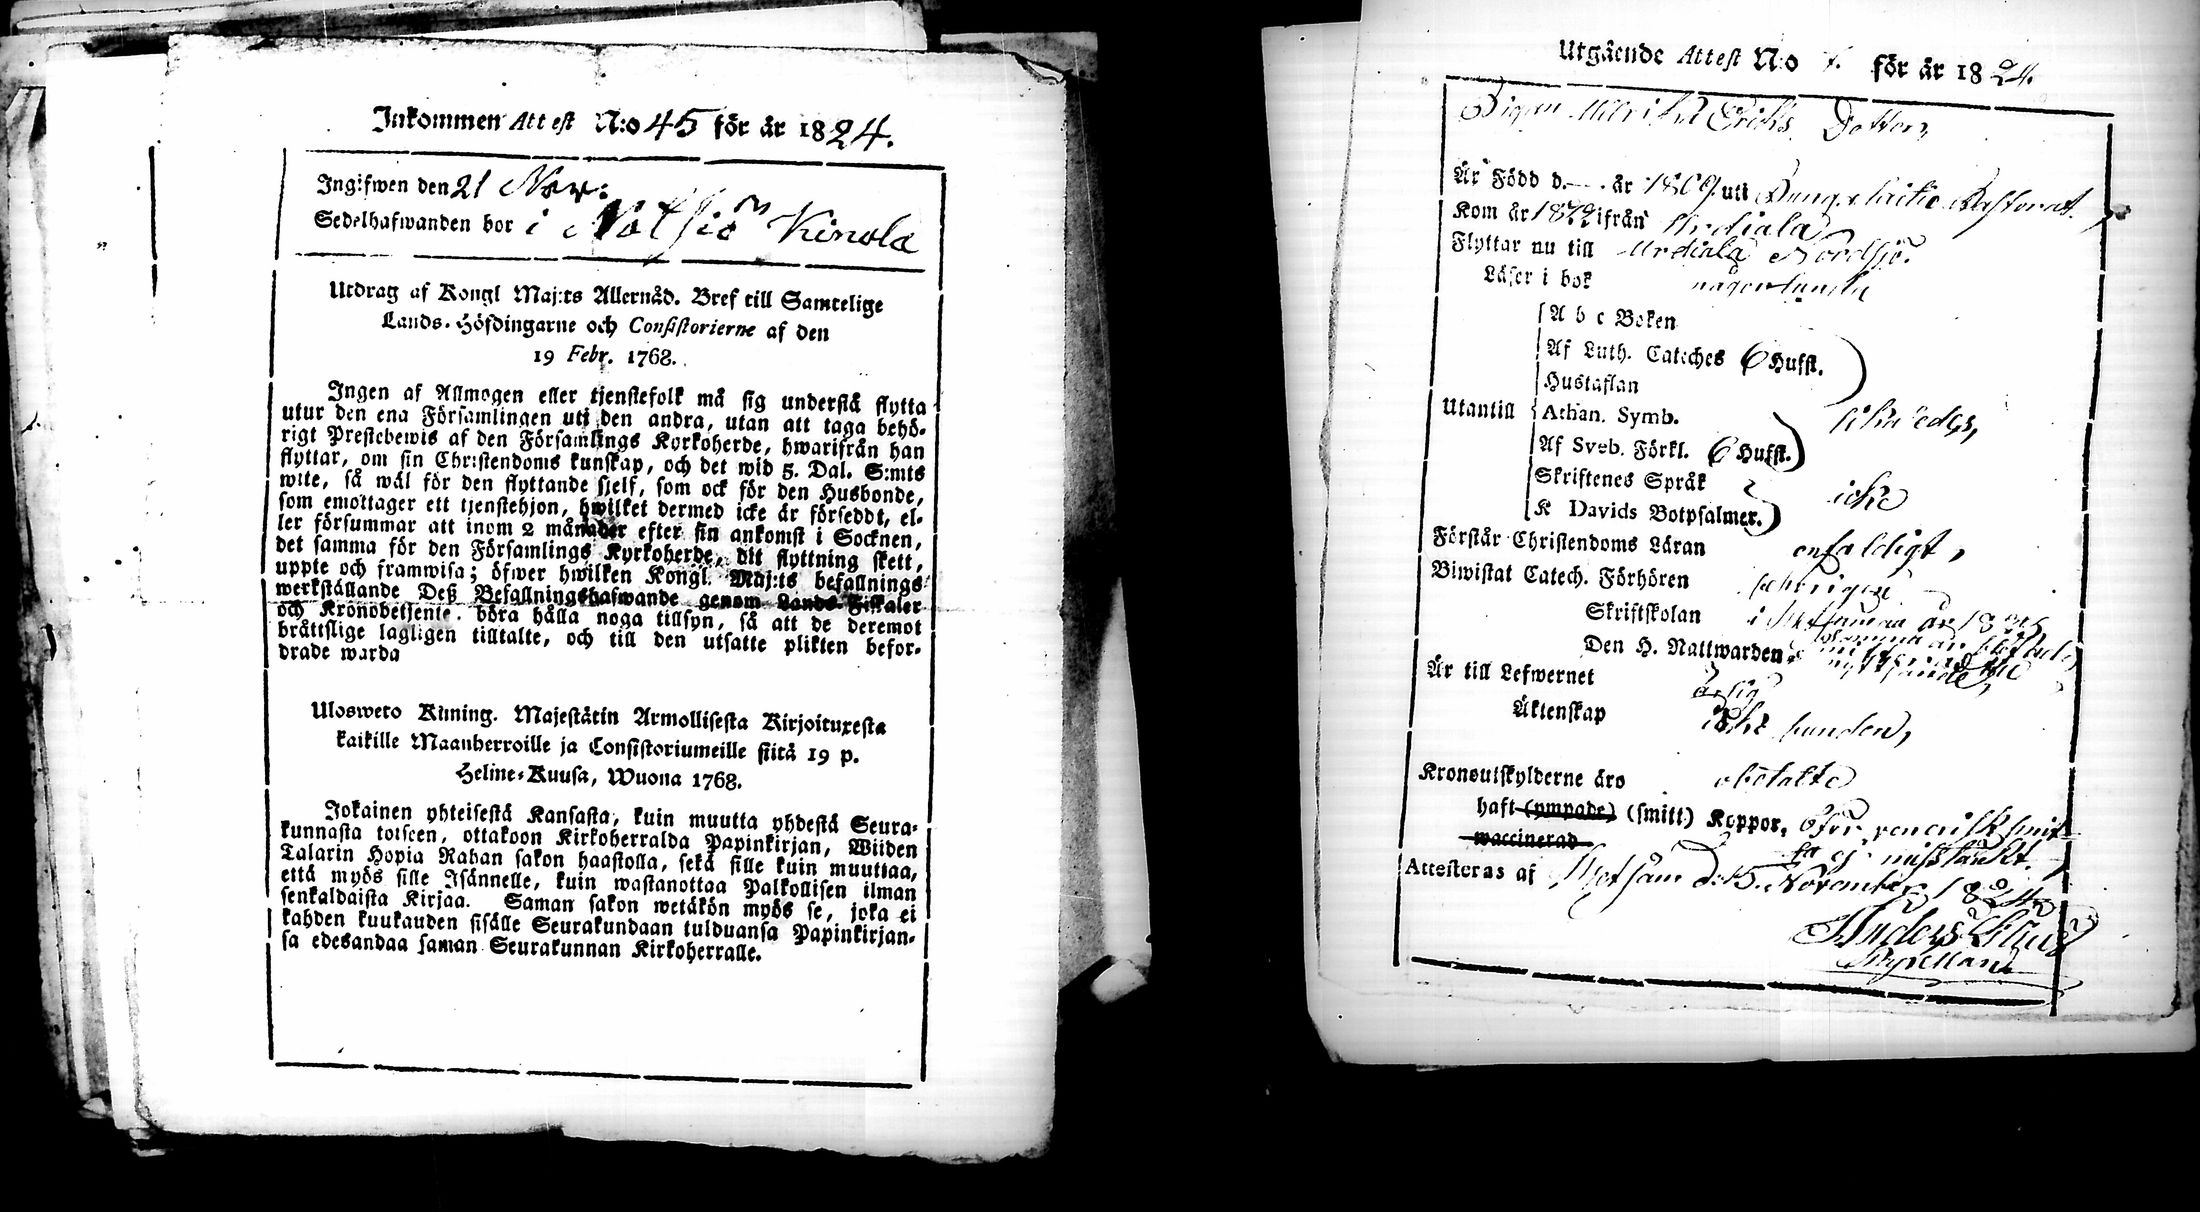 Inkommen Attest N:o 45 för år 1824.
Ingifwen den 21 Nov:
Sedelhafwanden bor i Notsiö Kinola
Utdrag af Kongl Maj:ts Allernåd. Bref till Samtelige
Lands-Höfdingarne och Consistorierne af den
19 Febr. 1768.
Ingen af Allmogen eller tjenstefolk må sig understå flytta
utur den ena Församlingen uti den andra, utan att taga behö-
rigt Prestebewis af den Församlings Kyrkoherde, hwarifrån han
flyttar, om sin Christendoms kunskap, och det wid 5. Dal. S:mts
wite, så wäl för den flyttande sjelf, som ock för den Husbonde,
som emottager ett tjenstehjon, hwilket dermed icke är förseddt, el-
ler försummar att inom 2 månader efter sin ankomst i Socknen,
det samma för den Församlings Kyrkoherde, dit flyttning skett,
uppte och framwisa; öfwer hwilken Kongl. Maj:ts befallnings
werkställande Deß Befallningshafwande genom Lands-Fiskaler
och Kronobetjente, böra hålla noga tillsyn, så att de deremot
bråttslige lagligen tilltalte, och till den utsatte plikten befor-
drade warda
Ulosweto Kuning. Majestätin Armollisesta Kirjoituxesta
kaikille Maanherroille ja Consistoriumeille siitä 19 p.
Helme-Kuusa, Wuona 1768.
Jokainen yhteisestä Kansasta, kuin muutta yhdestä Seura-
kunnasta toiseen, ottakoon Kirkoherralda Papinkirjan, Wiiden
Talarin Hopia Rahan sakon haastolla, sekä sille kuin muuttaa,
että myös sille Isännelle, kuin wastanottaa Palkollisen ilman
senkaldaista Kirjaa. Saman sakon wetäkön myös se, joka ei
kahden kuukauden sisälle Seurakundaan tulduansa Papinkirjan-
sa edesandaa saman Seurakunnan Kirkoherralle.
Utgående Attest N:o för år 1824.
Pigan Ulrika Erichs Dotter,
Är Född d. — år 1809 uti Pungalaitio Pastorat.
Kom år ifrån Urdiala
Flyttar nu till Urdiala Nordsjö.
Läser i bok någorlunda
A b c Boken
Af Luth. Cateches 6 Hufst.
Hustaflan
Utantill Athan. Symb. likaledes,
Af Sveb. Förkl. 6 Hufst.
Skriftenes Språk icke
K Davids Botpsalmer.
Förstår Christendoms Läran enfaldigt,
Biwistat Catech. Förhören
Skriftskolan i
Den H. Nattwarden
Är till Lefwernet ärlig
Äktenskap icke bunden,
Kronoutskylderne äro obetalte
haft (ympade) (smitt) Koppor, för venerisk smit-
waccinerad ta ej misstänkt.
Attesteras af d. 15 November 1824
Anders